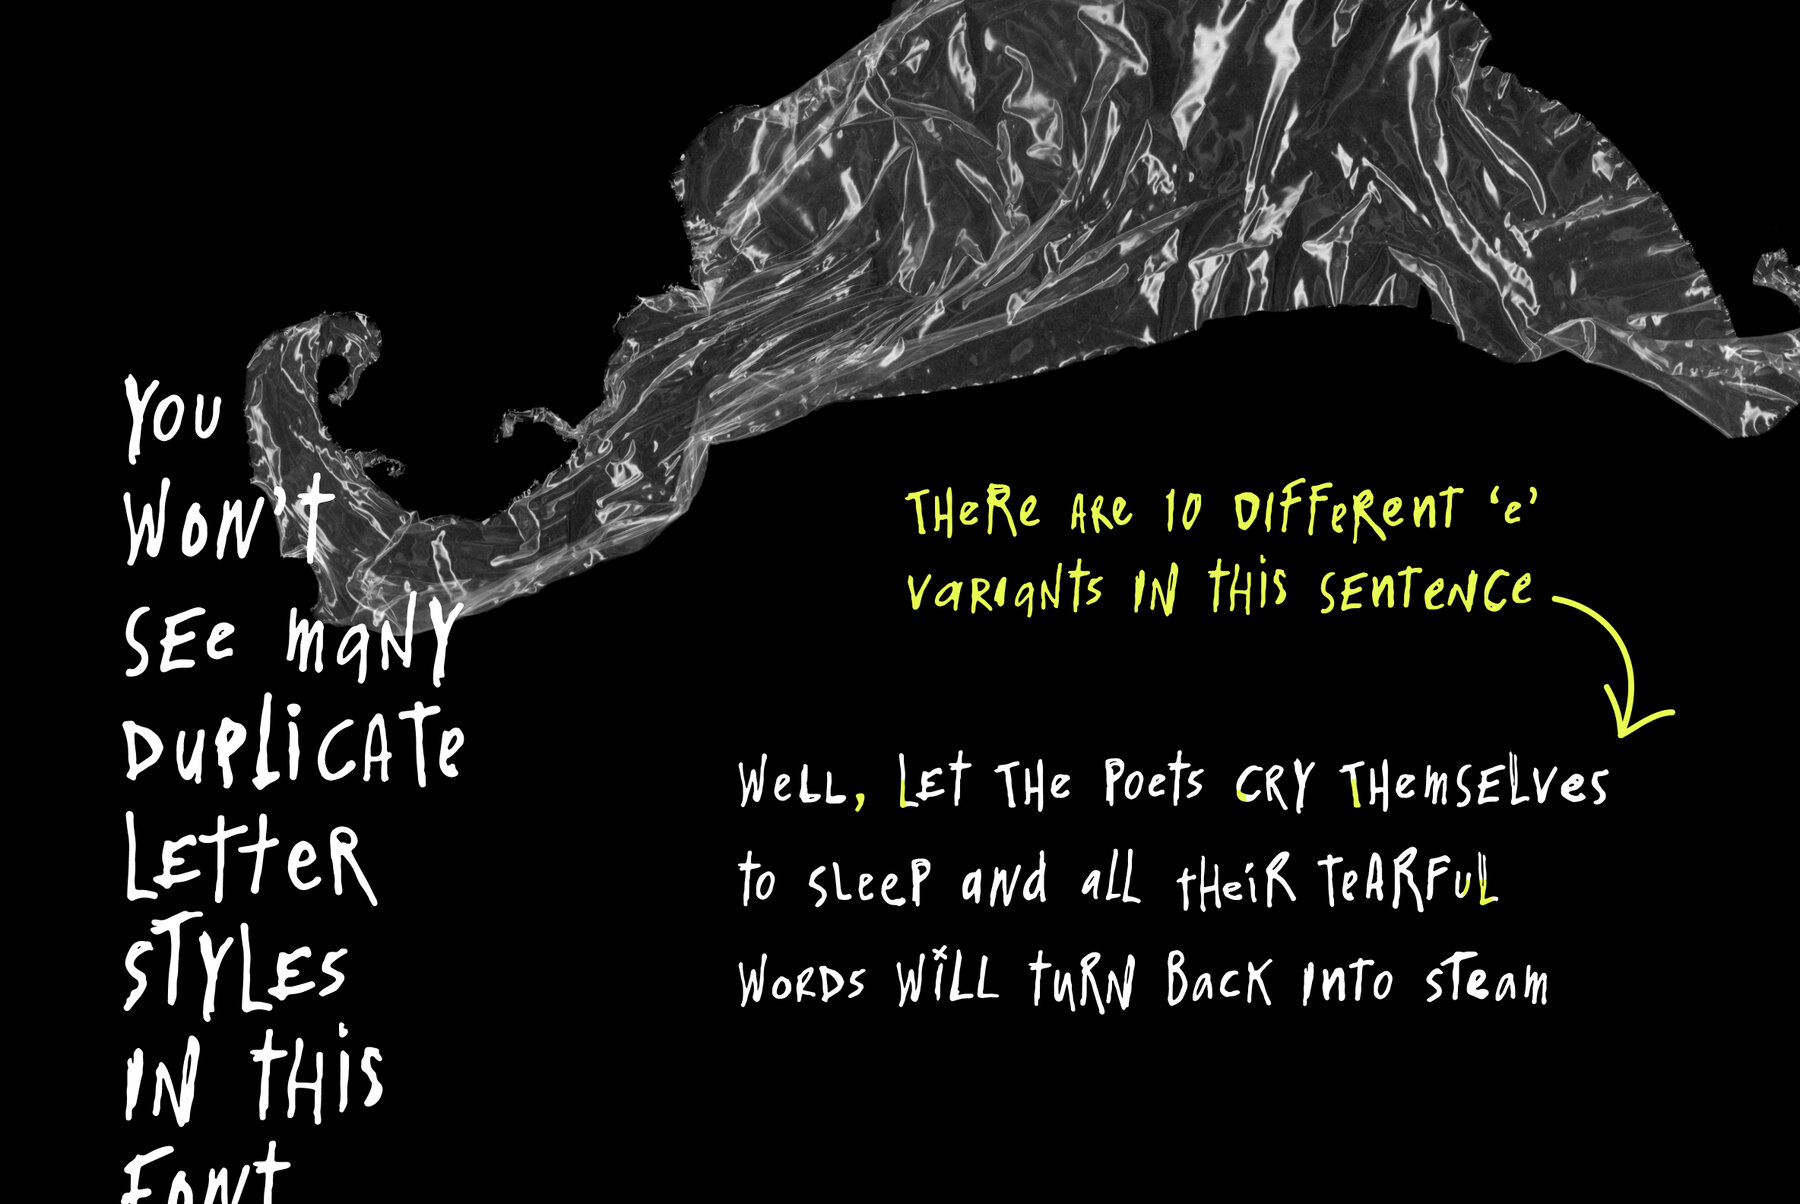 YOU
WON'T
SEe maNY
DupLiCATe
LETteR
STYLES
IN tHis
FONt
THeRe ARe 10 DIFFeRenT ‘e’
VaRiaNts IN tHis SEnTeNCe
WeLL, LET THe Poets CRY THemSELves
to SLeeP aNd aLL tHeiR TeARFuL
WoRDS WiLL tuRN BacK InTo STeam